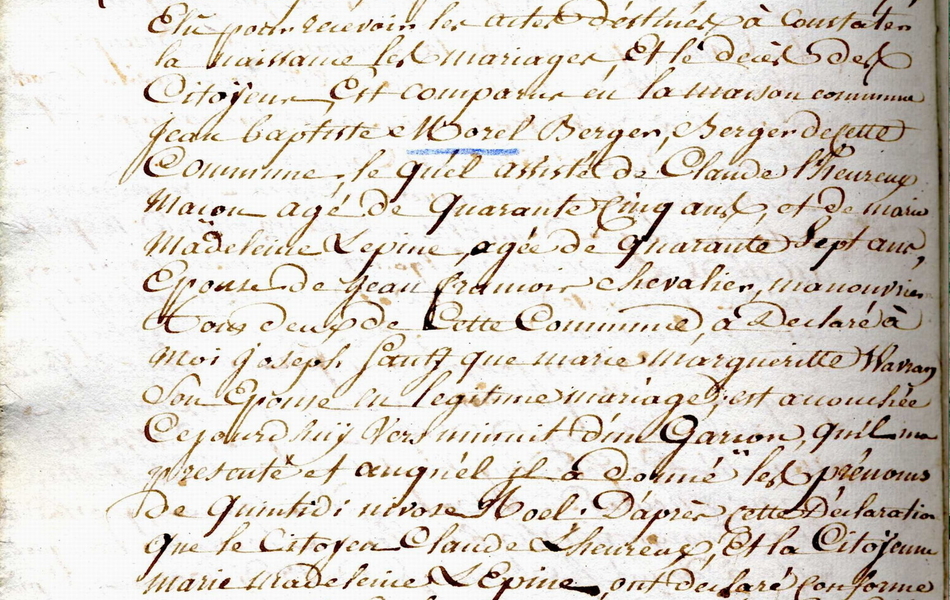 Elû pour recevoir les actes déstinés à Constater
la naissance les mariages Et lé décès des
Citoÿens, Est comparu en la maison commune
jean baptiste Morel Berger, Berger de cette
Commune, le quel assisté de Claude l'heureux
maçon agé de quarante Cinq ans, et de marie
madeleine Lepine, agée de quarante Sept ans,
Epouse de jean francois chevalier, manouvrier
tous deux de Cette Commune, a Declaré à
moi joseph que marie margueritte
Son Epouse en legitime mariage, est accouchée
Cejourd'huÿ vers minuit d'un Garcon, qu'il ma
presenté et auquel il a donné les prénoms
de quintidi nivose Noel. D'après cette Déclaration
que le Citoÿen Claude Lheureux, Et la Citoÿenne
marie madeleine LEpine, ont declaré conforme